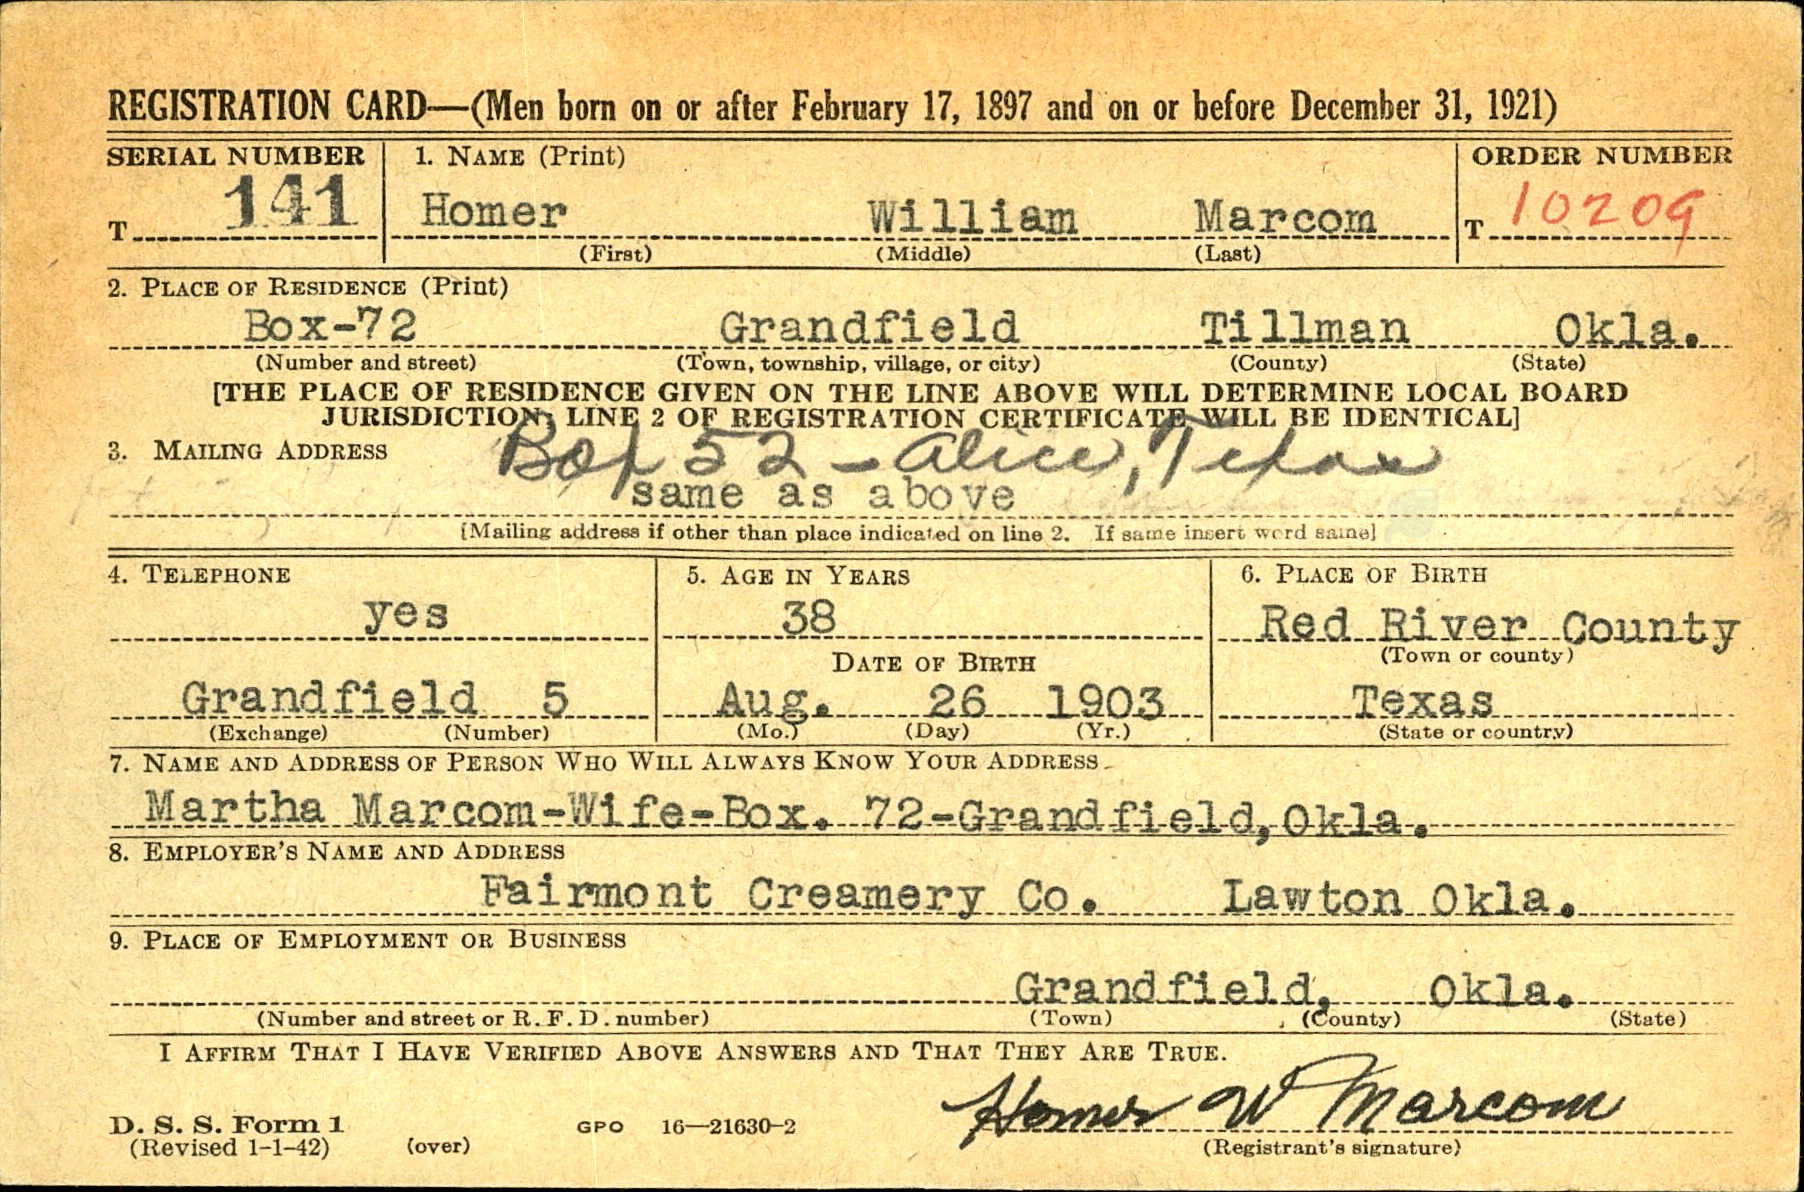 REGISTRATION CARD—(Men born on or after February 17, 1897 and on or before December 31, 1921)
SERIAL NUMBER 1. NAME (Print) ORDER NUMBER
T 141 Homer William Marcom T 10209
(First) (Middle) (Last)
2. PLACE OF RESIDENCE (Print)
Box-72 Grandfield Tillman Okla.
(Number and street) (Town, township, village, or city) (County) (State)
[THE PLACE OF RESIDENCE GIVEN ON THE LINE ABOVE WILL DETERMINE LOCAL BOARD
JURISDICTION; LINE 2 OF REGISTRATION CERTIFICATE WILL BE IDENTICAL]
3. MAILING ADDRESS Box 52 - Alice, Texas
same as above
[Mailing address if other than place indicated on line 2. If same insert word same]
4. TELEPHONE 5. AGE IN YEARS 6. PLACE OF BIRTH
yes 38 Red River County
DATE OF BIRTH (Town or county)
Grandfield 5 Aug. 26 1903 Texas
(Exchange) (Number) (Mo.) (Day) (Yr.) (State or country)
7. NAME AND ADDRESS OF PERSON WHO WILL ALWAYS KNOW YOUR ADDRESS
Martha Marcom-Wife-Box. 72-Grandfield,Okla.
8. EMPLOYER'S NAME AND ADDRESS
Fairmont Creamery Co. Lawton Okla.
9. PLACE OF EMPLOYMENT OR BUSINESS
Grandfield, Okla.
(Number and street or R. F. D. number) (Town) (County) (State)
I AFFIRM THAT I HAVE VERIFIED ABOVE ANSWERS AND THAT THEY ARE TRUE.
Homer W Marcom
D. S. S. Form 1 GPO 16—21630-2
(Revised 1-1-42) (over) (Registrant's signature)